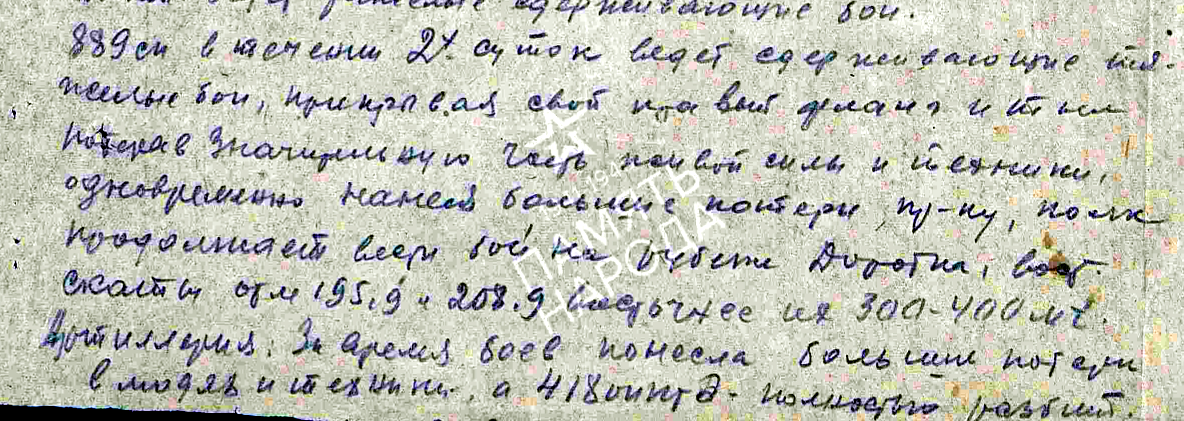 сдерживающие бои.
889 сп в течении 2х суток ведет сдерживающие тя-
желые бои, прикрывая свой правый фланг и тыл
потеряв значительную часть живой силы и техники,
одновременно нанеся большие потери пр-ку, полк
продолжает вести бой на рубеже вост.
скаты отм 195,9 и 208.9 восточнее их 300-400 мт.
Артиллерия. За время боев понесла большие потери
в людях и технике, а 418 полностью разбит.
ПАМЯТЬ
НАРОДА